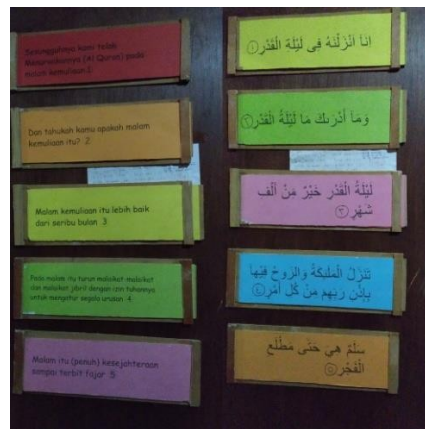 Sesungguhnya kami telah
Menurunkannya (Al Quran) pada
malam kemuliaan 1
Dan tahukah kamu apakah malam
kemuliaan itu? 2
Malam kemuliaan itu lebih baik
dari seribu bulan 3
Pada malam itu turun malaikat-malaikat
dan malaikat jibril dengan izin tuhannya
untuk mengatur segala urusan 4
Malam itu (penuh) kesejahteraan
sampai terbit fajar 5
اِنَّا اَنْزَلْنٰهُ فِى لَيْلَةِ الْقَدْرِ ①
وَمَا اَدْرٰىكَ مَا لَيْلَةُ الْقَدْرِ ②
لَيْلَةُ الْقَدْرِ خَيْرٌ مِنْ اَلْفِ
شَهْرٍ ③
تَنَزَّلُ الْمَلٰٓئِكَةُ وَالرُّوْحُ فِيْهَا
بِاِذْنِ رَبِّهِمْ مِنْ كُلِّ اَمْرٍ ④
سَلٰمٌ هِيَ حَتّٰى مَطْلَعِ
الْفَجْرِ ⑤